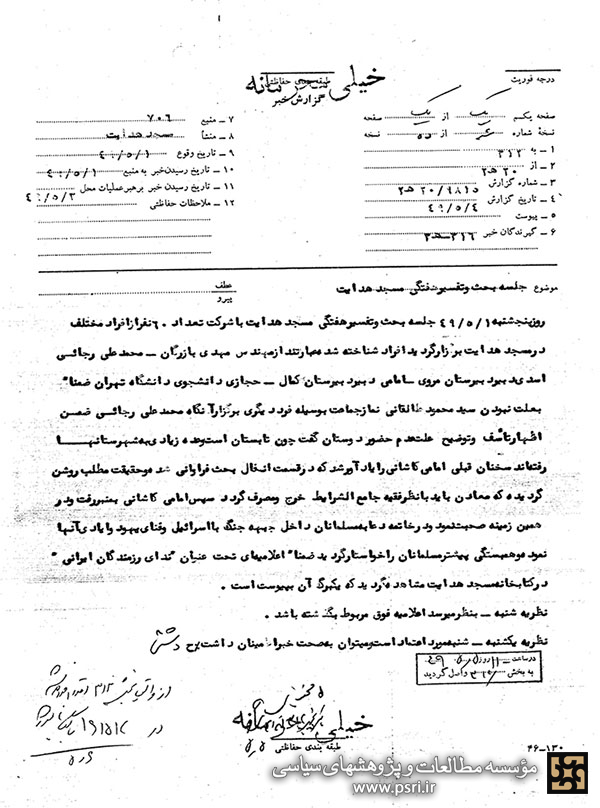 خیلی محرمانه
طبقه‌بندی حفاظتی
گزارش خبر
درجه فوریت
صفحه یکم یک از یک صفحه
نسخهٔ شماره از نسخه
۱ ــ به ۳۱۲
۲ ــ از ۲۰ هـ ۲
۳ ــ شماره گزارش ۹۸۱۵/ ۲۰ هـ ۲
۴ ــ تاریخ گزارش ۴۹/۵/۴
۵ ــ پیوست
۶ ــ گیرندگان خبر ۳۱۶ــ هـ ۳
۷ ــ منبع ۷۰۶
۸ ــ منشأ مسجد هدایت
۹ ــ تاریخ وقوع ۴۹/۵/۱
۱۰ ــ تاریخ رسیدن خبر به منبع ۴۹/۵/۱
۱۱ ــ تاریخ رسیدن خبر برهبر عملیات محل ۴۹/۵/۳
۱۲ ــ ملاحظات حفاظتی
موضوع جلسه بحث وتفسیرهفتگی مسجد هدایت
عطف
پیرو
روزپنجشنبه ۴۹/۵/۱ جلسه بحث وتفسیرهفتگی مسجد هدایت با شرکت تعداد ۶۰ نفرازافراد مختلف
درمسجد هدایت برگزارگردید افراد شناخته شده عبارتند ازمهندس مهدی بازرگان ــ محمد علی رجائی
اسدی دبیر دبیرستان مروی ــ امامی دبیر دبیرستان کمال ــ حجازی دانشجوی دانشگاه تهران ضمنا"
بعلت نبودن سید محمود طالقانی نماز جماعت بوسیله فرد دیگری برگزار آنگاه محمد علی رجائی ضمن
اظهارتأسف وتوضیح علت عدم حضور دوستان گفت چون تابستان است وعده زیادی به شهرستانها
رفته‌اند سخنان قبلی امامی کاشانی را یادآور شد که درقسمت انفال بحث فراوانی شد وحقیقت مطلب روشن
گردید که معادن باید با نظر فقیه جامع الشرایط خرج ومصرف گردد سپس امامی کاشانی بمنبر رفت ودر
همین زمینه صحبت نمود ودرخاتمه دعا به مسلمانان داخل جبهه جنگ با اسرائیل وفنای یهود وایادی آنها
نمود وهمبستگی بیشتر مسلمانان را خواستار گردید ضمنا" اعلامیه‌ای تحت عنوان "ندای رزمندگان ایرانی"
در کتابخانه مسجد هدایت مشاهده گردید که یکبرگ آن بپیوست است ۰
نظریه شنبه ــ بنظر میرسد اعلامیه فوق مربوط بگذشته باشد ۰
نظریه یکشنبه ــ شنبه مورد اعتماد است ومیتوان به صحت خبر اطمینان داشت
در ساعت ۱۱ روز
به بخش ۳۱۲ واصل گردید
در
خیلی محرمانه
طبقه بندی حفاظتی
۴۶ــ۱۳۰
مؤسسه مطالعات و پژوهشهای سیاسی
www.psri.ir